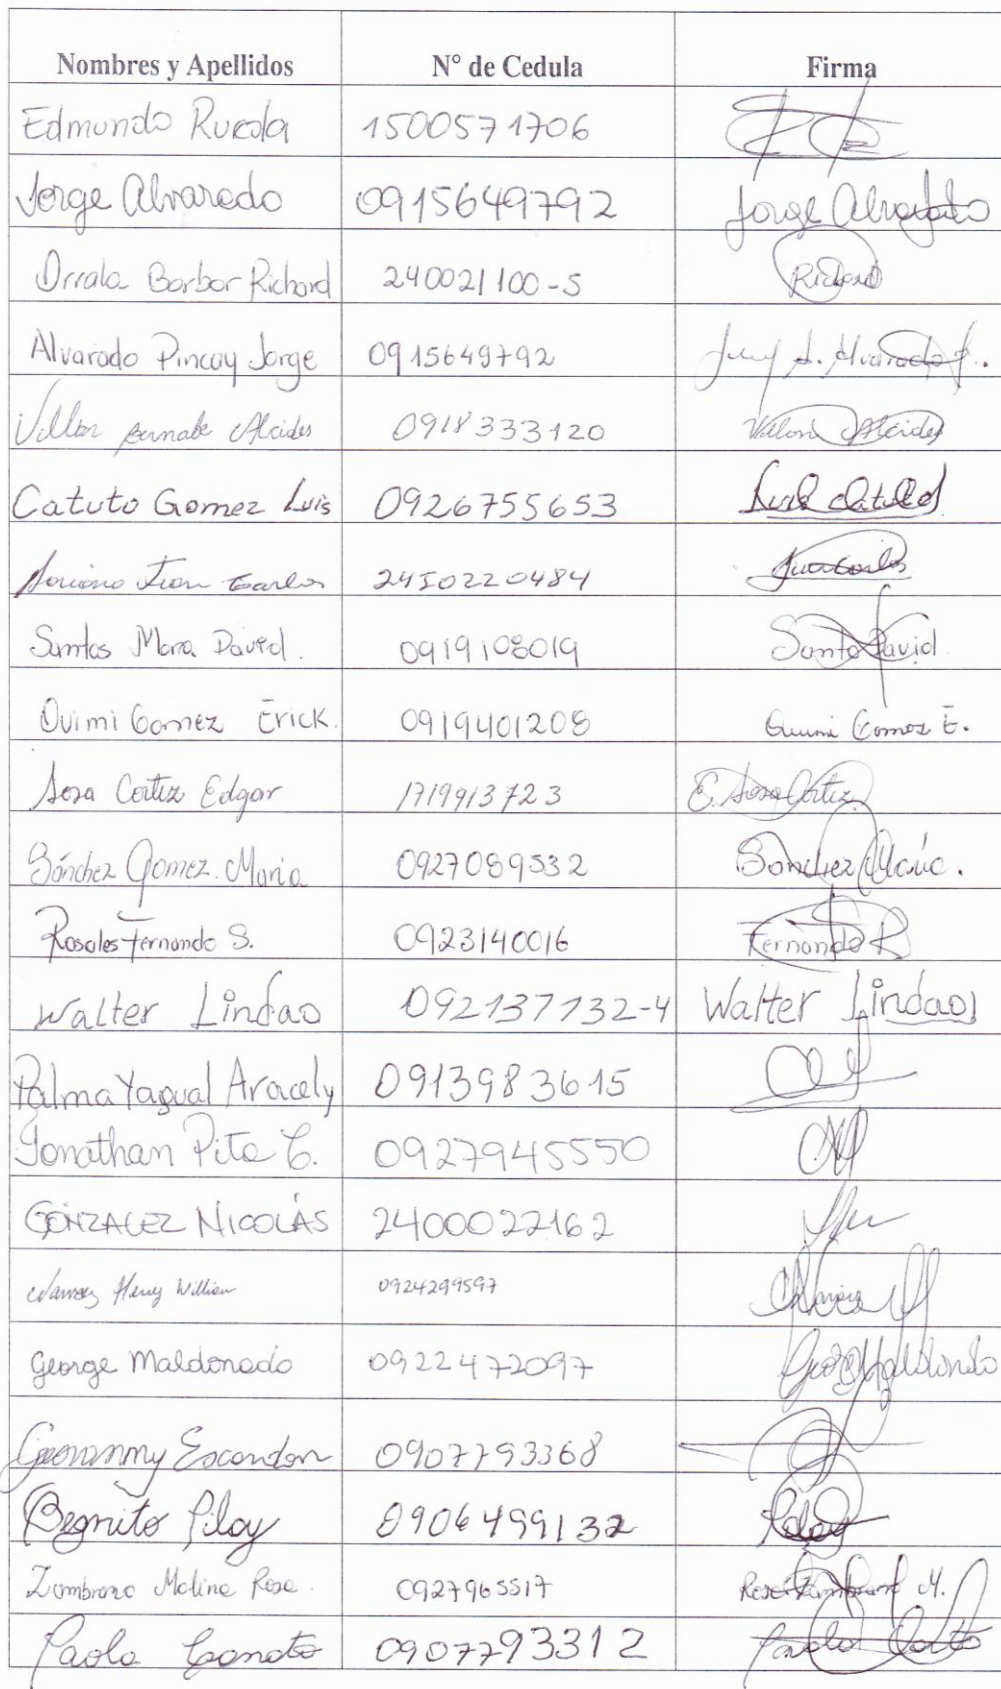 Nombres y Apellidos N° de Cedula Firma
Edmundo Rueda 1500571706
Jorge Alvaredo 0915649792 Jorge Alvarado
Orrala Borbor Richard 240021100-5 Richard
Alvarado Pincay Jorge 0915649792 A. Alvarado
Villon Bernabe Alcides 0918333120 Villon Alcides
Catuto Gomez Luis 0926755653 Luis Catuto
Soriano Juan Carlos 2450220484 Juan Carlos
Santos Mora David. 0919108019 Santo David
Quimi Gomez Erick. 0919401208 Quimi Gomez E.
Sosa Cortez Edgar 1719913723 E. Sosa Cortez
Sánchez Gomez. Maria 0927089532 Sanchez Maria.
Rosales Fernando S. 0923140016 Fernando R
Walter Lindao 092137732-4 Walter Lindao
Palma Yagual Aracely 0913983615
Jonathan Pita C. 0927945550
GONZALEZ NICOLÁS 2400022162
Henry Willian 0924299597
George Maldonado 0922472097 George Maldonado
Geovanny Escandon 0907793368
Begnito Pilay 0906499132 Pilay
Zambrano Molina Rosa. 0927965517 Rosa Zambrano M.
Paola 0907793312 Paola